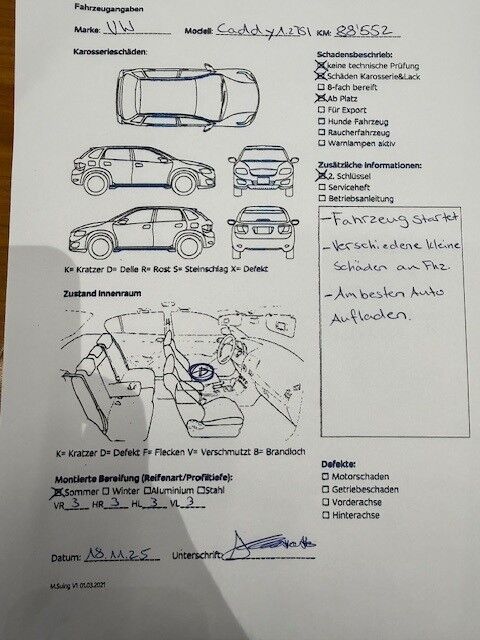 Fahrzeugangaben
Marke: VW Modell: Caddy 1.2 TSI KM: 88'552
Karosserieschäden:
Schadensbeschrieb:
☒ keine technische Prüfung
☒ Schäden Karosserie&Lack
☐ 8-fach bereift
☒ Ab Platz
☐ Für Export
☐ Hunde Fahrzeug
☐ Raucherfahrzeug
☐ Warnlampen aktiv
Zusätzliche Informationen:
☒ 2. Schlüssel
☐ Serviceheft
☐ Betriebsanleitung
- Fahrzeug startet
- Verschiedene kleine
Schäden an Fhz.
- Am besten Auto
Aufladen.
K= Kratzer D= Delle R= Rost S= Steinschlag X= Defekt
Zustand Innenraum
D
K= Kratzer D= Defekt F= Flecken V= Verschmutzt B= Brandloch
Montierte Bereifung (Reifenart/Profiltiefe):
☒ Sommer ☐ Winter ☐ Aluminium ☐ Stahl
VR 3 HR 3 HL 3 VL 3
Defekte:
☐ Motorschaden
☐ Getriebeschaden
☐ Vorderachse
☐ Hinterachse
Datum: 18.11.25 Unterschrift:
M.Suing V1 01.03.2021